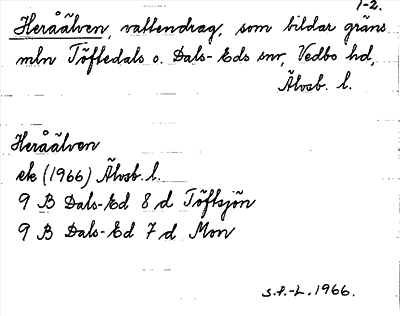 1-2.
Heråälven, vattendrag, som bildar gräns
mln Töftedals o. Dals-Eds snr, Vedbo hd,
Älvsb. l.
Heråälven
ek (1966) Älvsb. l.
9 B Dals-Ed 8 d Töftsjön
9 B Dals-Ed 7 d Mon
S.F.-L. 1966.